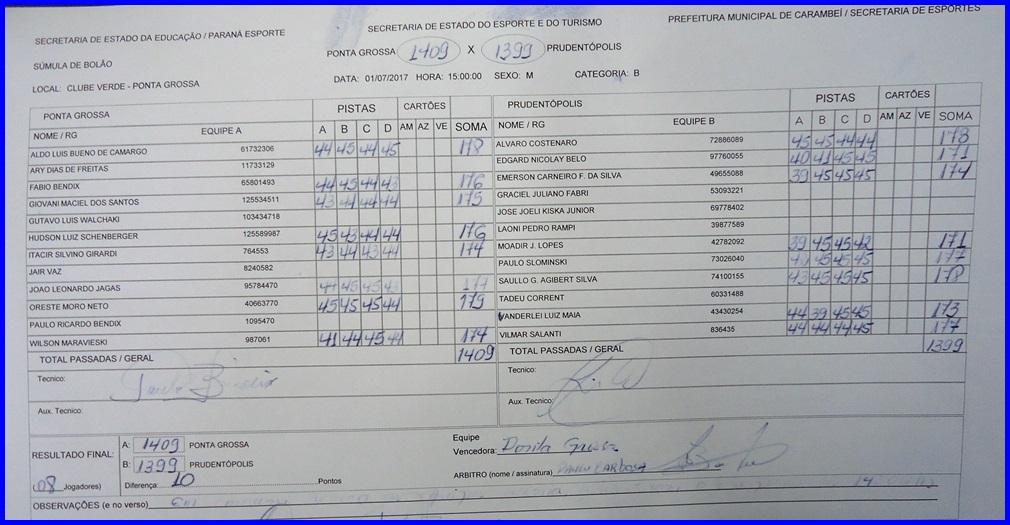 SECRETARIA DE ESTADO DA EDUCAÇÃO / PARANÁ ESPORTE
SECRETARIA DE ESTADO DO ESPORTE E DO TURISMO
PREFEITURA MUNICIPAL DE CARAMBEÍ / SECRETARIA DE ESPORTES
SÚMULA DE BOLÃO
PONTA GROSSA 1409 X 1399 PRUDENTÓPOLIS
LOCAL: CLUBE VERDE - PONTA GROSSA
DATA: 01/07/2017 HORA: 15:00:00 SEXO: M CATEGORIA: B
PONTA GROSSA PISTAS CARTÕES
NOME / RG EQUIPE A A B C D AM AZ VE SOMA
ALDO LUIS BUENO DE CAMARGO 61732306 44 45 44 45 178
ARY DIAS DE FREITAS 11733129
FABIO BENDIX 65801493 44 45 44 43 176
GIOVANI MACIEL DOS SANTOS 125534511 43 44 44 44 175
GUTAVO LUIS WALCHAKI 103434718
HUDSON LUIZ SCHENBERGER 125589987 45 43 44 44 176
ITACIR SILVINO GIRARDI 764553 43 44 43 44 174
JAIR VAZ 8240582
JOAO LEONARDO JAGAS 95784470 45 45 177
ORESTE MORO NETO 40663770 45 45 45 44 179
PAULO RICARDO BENDIX 1095470
WILSON MARAVIESKI 987061 41 44 45 44 174
TOTAL PASSADAS / GERAL 1409
Tecnico:
Aux. Tecnico:
PRUDENTÓPOLIS PISTAS CARTÕES
NOME / RG EQUIPE B A B C D AM AZ VE SOMA
ALVARO COSTENARO 72886089 45 45 44 44 178
EDGARD NICOLAY BELO 97760055 40 41 45 45 171
EMERSON CARNEIRO F. DA SILVA 49655088 39 45 45 45 174
GRACIEL JULIANO FABRI 53093221
JOSE JOELI KISKA JUNIOR 69778402
LAONI PEDRO RAMPI 39877589
MOADIR J. LOPES 42782092 39 45 45 42 171
PAULO SLOMINSKI 73026040 45 45 45 177
SAULLO G. AGIBERT SILVA 74100155 43 45 45 45 178
TADEU CORRENT 60331488
VANDERLEI LUIZ MAIA 43430254 44 39 45 45 173
VILMAR SALANTI 836435 44 44 44 45 177
TOTAL PASSADAS / GERAL 1399
Tecnico:
Aux. Tecnico:
RESULTADO FINAL: A: 1409 PONTA GROSSA
B: 1399 PRUDENTÓPOLIS
(08 Jogadores) Diferença: 10 Pontos
Equipe
Vencedora: Ponta Grossa
ARBITRO (nome / assinatura) PAULO BARBOSA
OBSERVAÇÕES (e no verso)